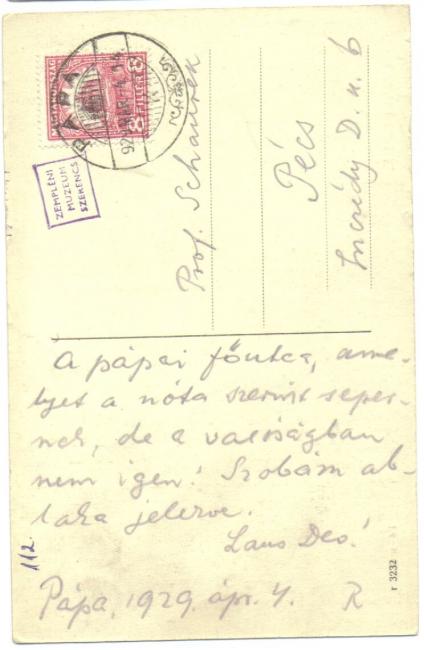 MAGYARORSZÁG
8 FILLÉR 8
PÁPA
ZEMPLÉNI
MUZEUM
SZERENCS
Prof. Schaurek
Pécs
Inczédy D. u. 6
A pápai főutca, ame-
lyet a nóta szerint seper-
nek, de a valóságban
nem igen! Szobám ab-
laka jelezve.
Laus Deo!
112.
Pápa, 1929. ápr. 4. R
r 3232